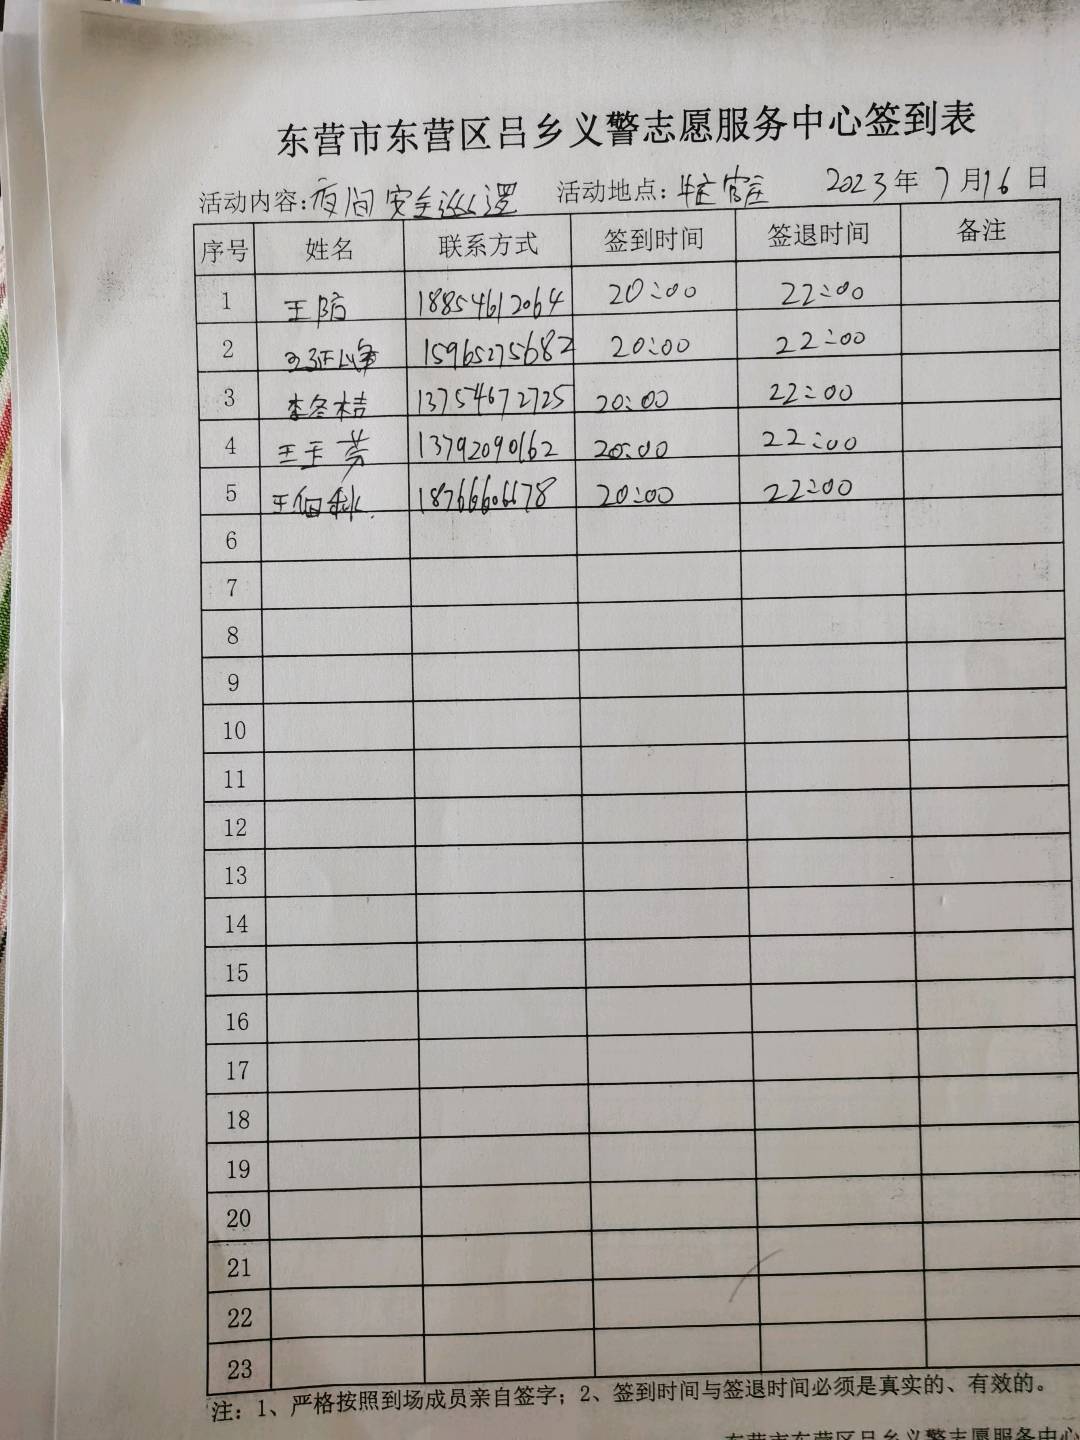 东营市东营区吕乡义警志愿服务中心签到表
活动内容:夜间安全巡逻 活动地点: 官庄 2023年7月16日
序号 姓名 联系方式 签到时间 签退时间 备注
1 王防 18854612064 20:00 22:00
2 15965275682 20:00 22:00
3 李冬桔 13754672725 20:00 22:00
4 王玉芳 13792090162 20:00 22:00
5 王佰秋 18766606678 20:00 22:00
6
7
8
9
10
11
12
13
14
15
16
17
18
19
20
21
22
23
注：1、严格按照到场成员亲自签字；2、签到时间与签退时间必须是真实的、有效的。
东营市东营区吕乡义警志愿服务中心